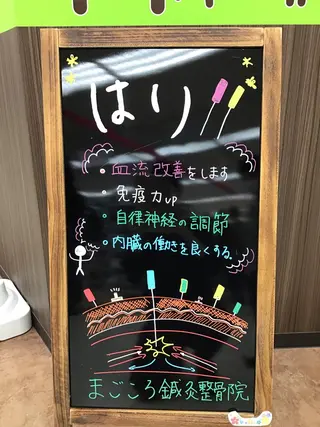 はり
・血流改善をします
・免疫力up
・自律神経の調節
・内臓の働きを良くする。
まごころ鍼灸整骨院